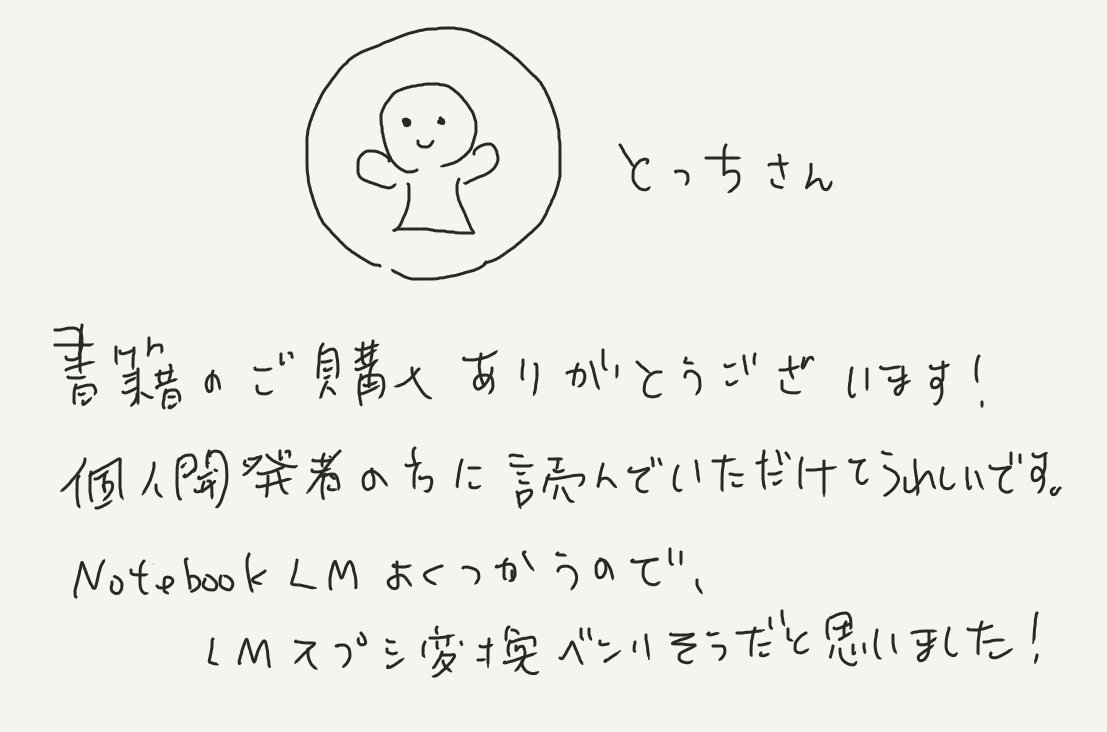 とっちさん
書籍のご購入ありがとうございます!
個人開発者の方に読んでいただけてうれしいです。
NotebookLMよくつかうので、
LMスプシ変換ベンリそうだと思いました!